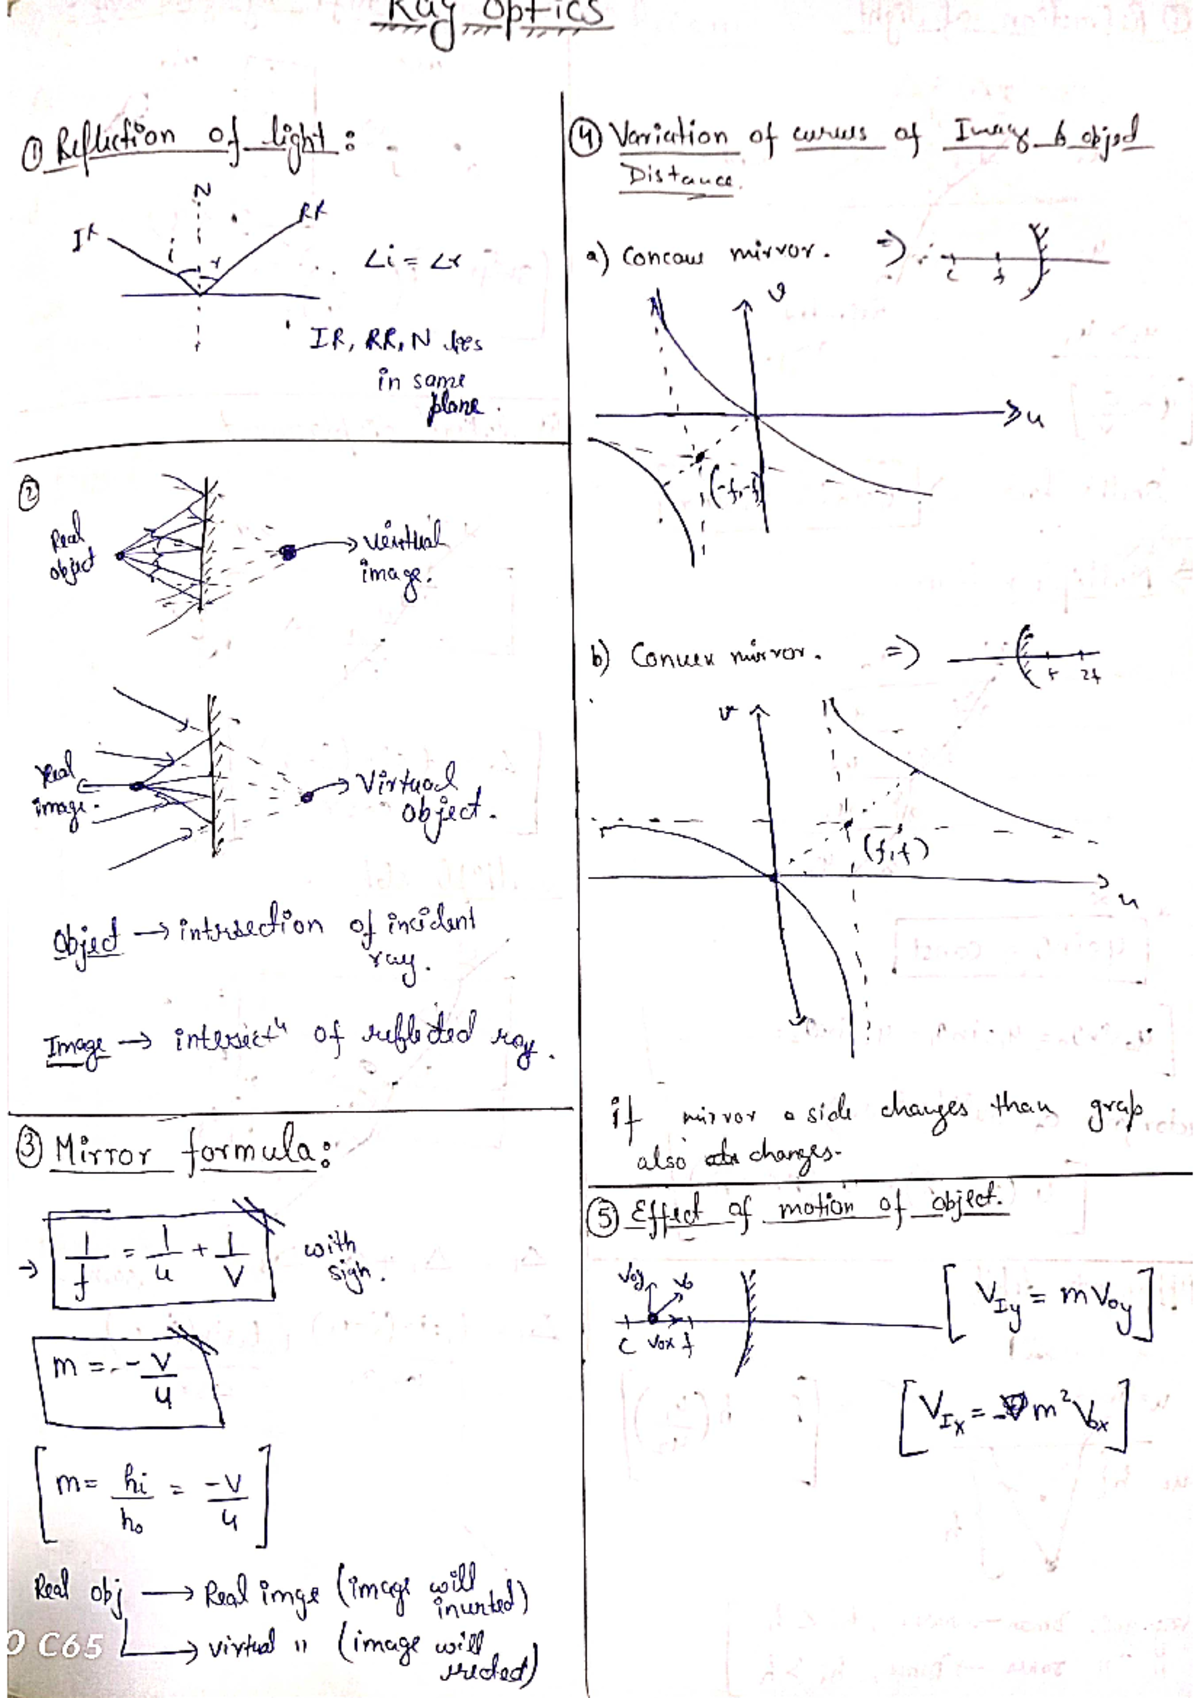 Ray Optics
① Reflection of light:
N
IR
RR
i
r
∠i = ∠r
IR, RR, N lies
in same
plane.
②
Real
object
virtual
image.
Real
image.
Virtual
object.
Object → intersection of incident
ray.
Image → intersectⁿ of reflected ray.
③ Mirror formula:
→ 1/f = 1/u + 1/v
with
sign.
m = - v/u
[m = hi/ho = -v/u]
Real obj → Real imge (image will
inverted)
→ virtual 〃 (image will
erected)
C65
④ Variation of curves of Image & object
Distance.
a) Concave mirror. ⇒
c
f
v
u
(-f,-f)
b) Convex mirror. ⇒
f
2f
v
(f,f)
u
if mirror a side changes than grap
also changes.
⑤ Effect of motion of object.
Voy
Vo
C
Vox
f
[VIy = m Voy].
[VIx = - m² Vox]